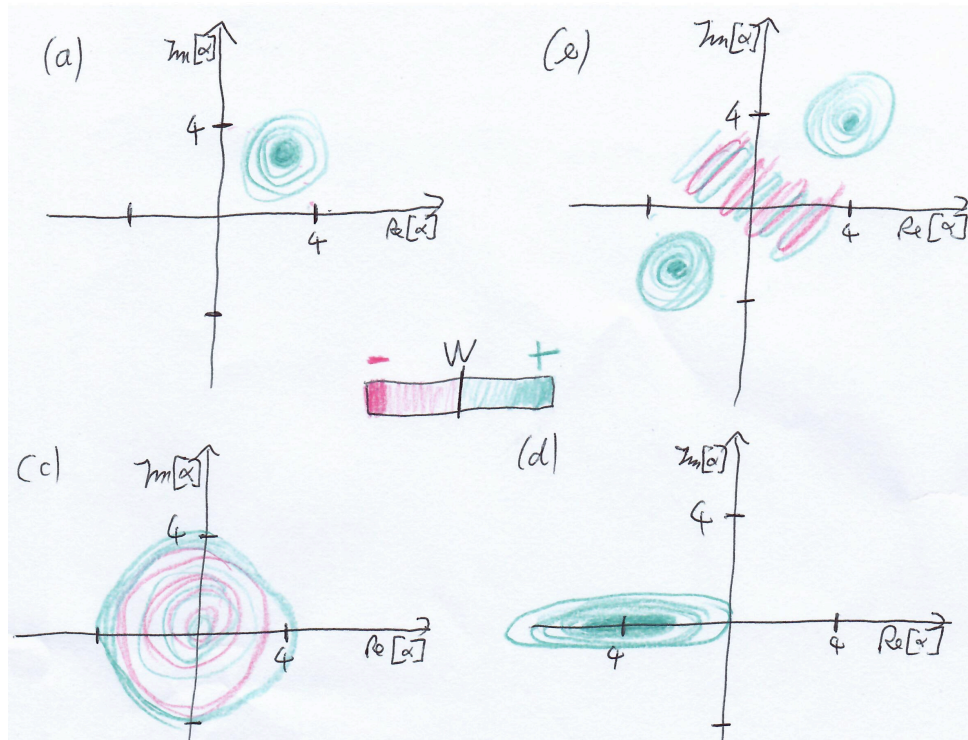 (a)
Im[α]
4
4
Re[α]
(b)
Im[α]
4
4
Re[α]
- W +
(c)
Im[α]
4
4
Re[α]
(d)
Im[α]
4
4
4
Re[α]